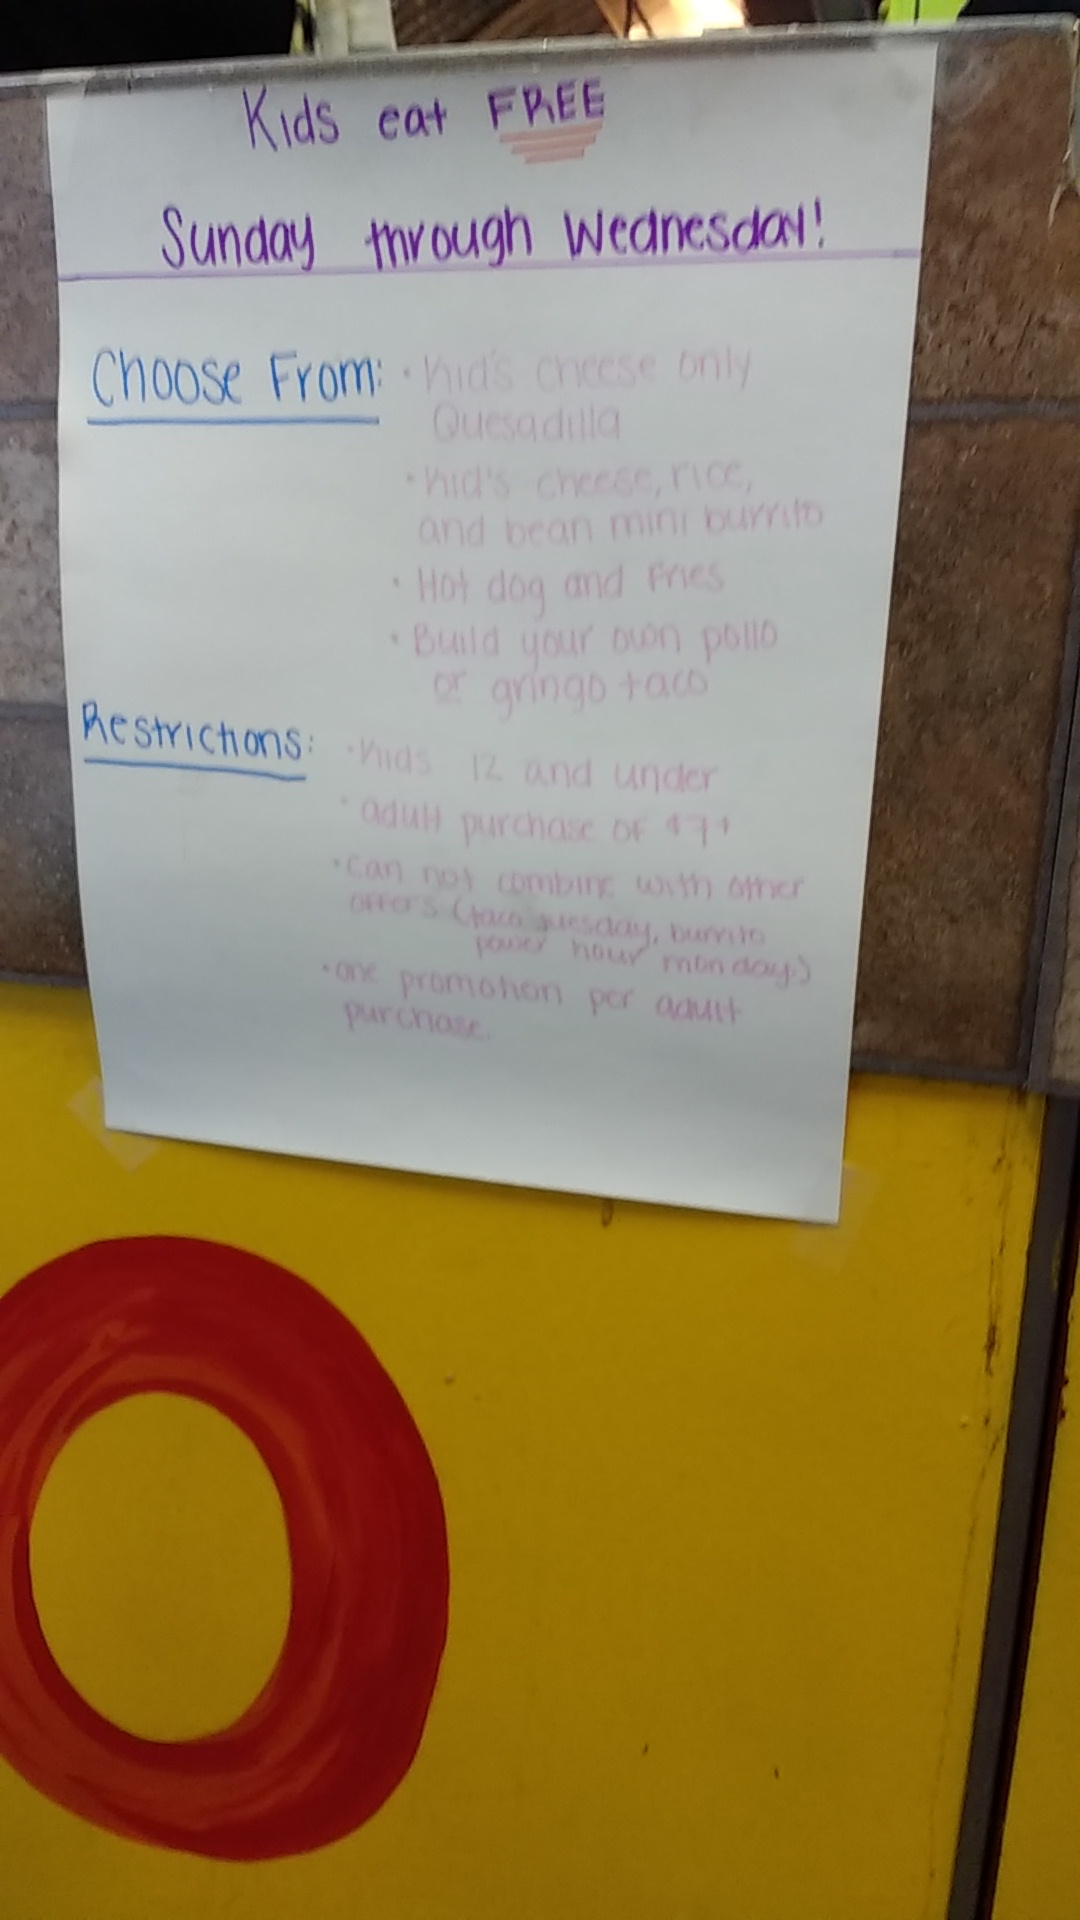 Kids eat FREE
Sunday through Wednesday!
Choose From: • Kid's cheese only
Quesadilla
• Kid's cheese, rice,
and bean mini burrito
• Hot dog and Fries
• Build your own pollo
or gringo taco
Restrictions: • Kids 12 and under
• adult purchase of $7+
• can not combine with other
offers (taco tuesday, burrito
power hour monday.)
• one promotion per adult
purchase.
O